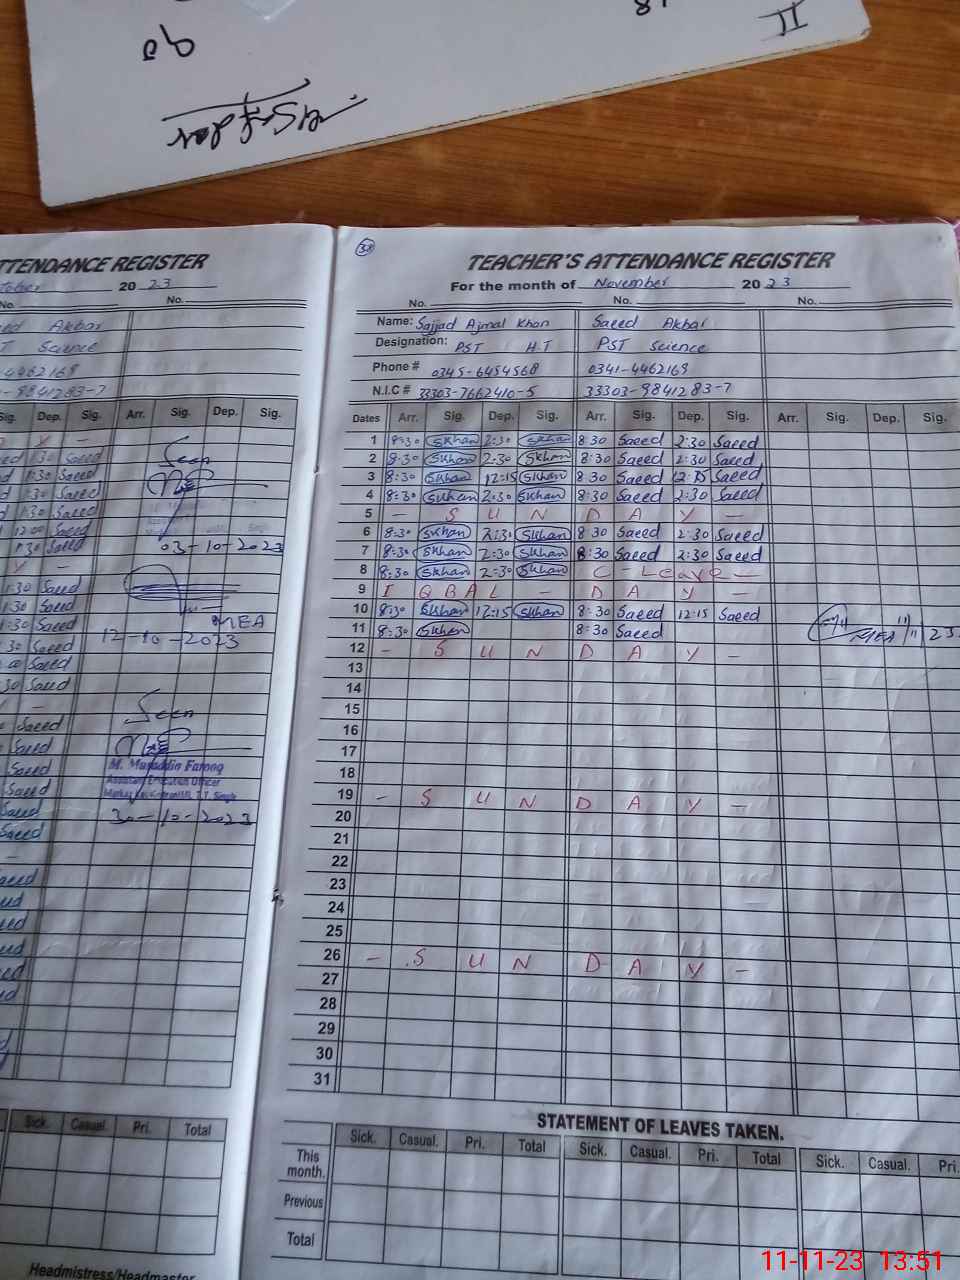 90
II
TTENDANCE REGISTER
tober 20 23
No. No.
eed Akbar
T Science
4462169
- 9841283-7
Sig. Dep. Sig. Arr. Sig. Dep. Sig.
Y -
1:30 Saeed
Seen
1:30 Saeed
1:30 Saeed
1:30 Saeed
12:00 Saeed
1:30 Saeed
03-10-2023
Y -
1:30 Saeed
1:30 Saeed
MEA
1:30 Saeed
12-10-2023
:30 Saeed
Saeed
30 Saeed
Seen
Saeed
Saeed
Saeed
Saeed
Saeed
Saeed
Assistant Education Officer
30-10-2023
Sick. Casual. Pri. Total
Headmistress/Headmaster
TEACHER'S ATTENDANCE REGISTER
For the month of November 2023
No. No. No.
Name: Sajjad Ajmal Khan Saeed Akbar
Designation: PST H.T PST Science
Phone # 0345-6454568 0341-4462169
N.I.C # 33303-7662410-5 33303-9841283-7
Dates Arr. Sig. Dep. Sig. Arr. Sig. Dep. Sig. Arr. Sig. Dep. Sig.
1 8:30 Skhan 2:30 Skhan 8:30 Saeed 2:30 Saeed
2 8:30 Skhan 2:30 Skhan 8:30 Saeed 2:30 Saeed
3 8:30 Skhan 12:15 Skhan 8:30 Saeed 12:15 Saeed
4 8:30 Skhan 2:30 Skhan 8:30 Saeed 2:30 Saeed
5 - S U N D A Y -
6 8:30 Skhan 2:30 Skhan 8:30 Saeed 2:30 Saeed
7 8:30 Skhan 2:30 Skhan 8:30 Saeed 2:30 Saeed
8 8:30 Skhan 2:30 Skhan C - Leave -
9 I Q B A L - D A Y -
10 8:30 Skhan 12:15 Skhan 8:30 Saeed 12:15 Saeed
11 8:30 Skhan 8:30 Saeed MEA 11/11/23
12 - S U N D A Y -
13
14
15
16
17
18
19 - S U N D A Y -
20
21
22
23
24
25
26 - S U N D A Y -
27
28
29
30
31
STATEMENT OF LEAVES TAKEN.
Sick. Casual. Pri. Total Sick. Casual. Pri. Total Sick. Casual. Pri.
This month.
Previous
Total
11-11-23 13:51